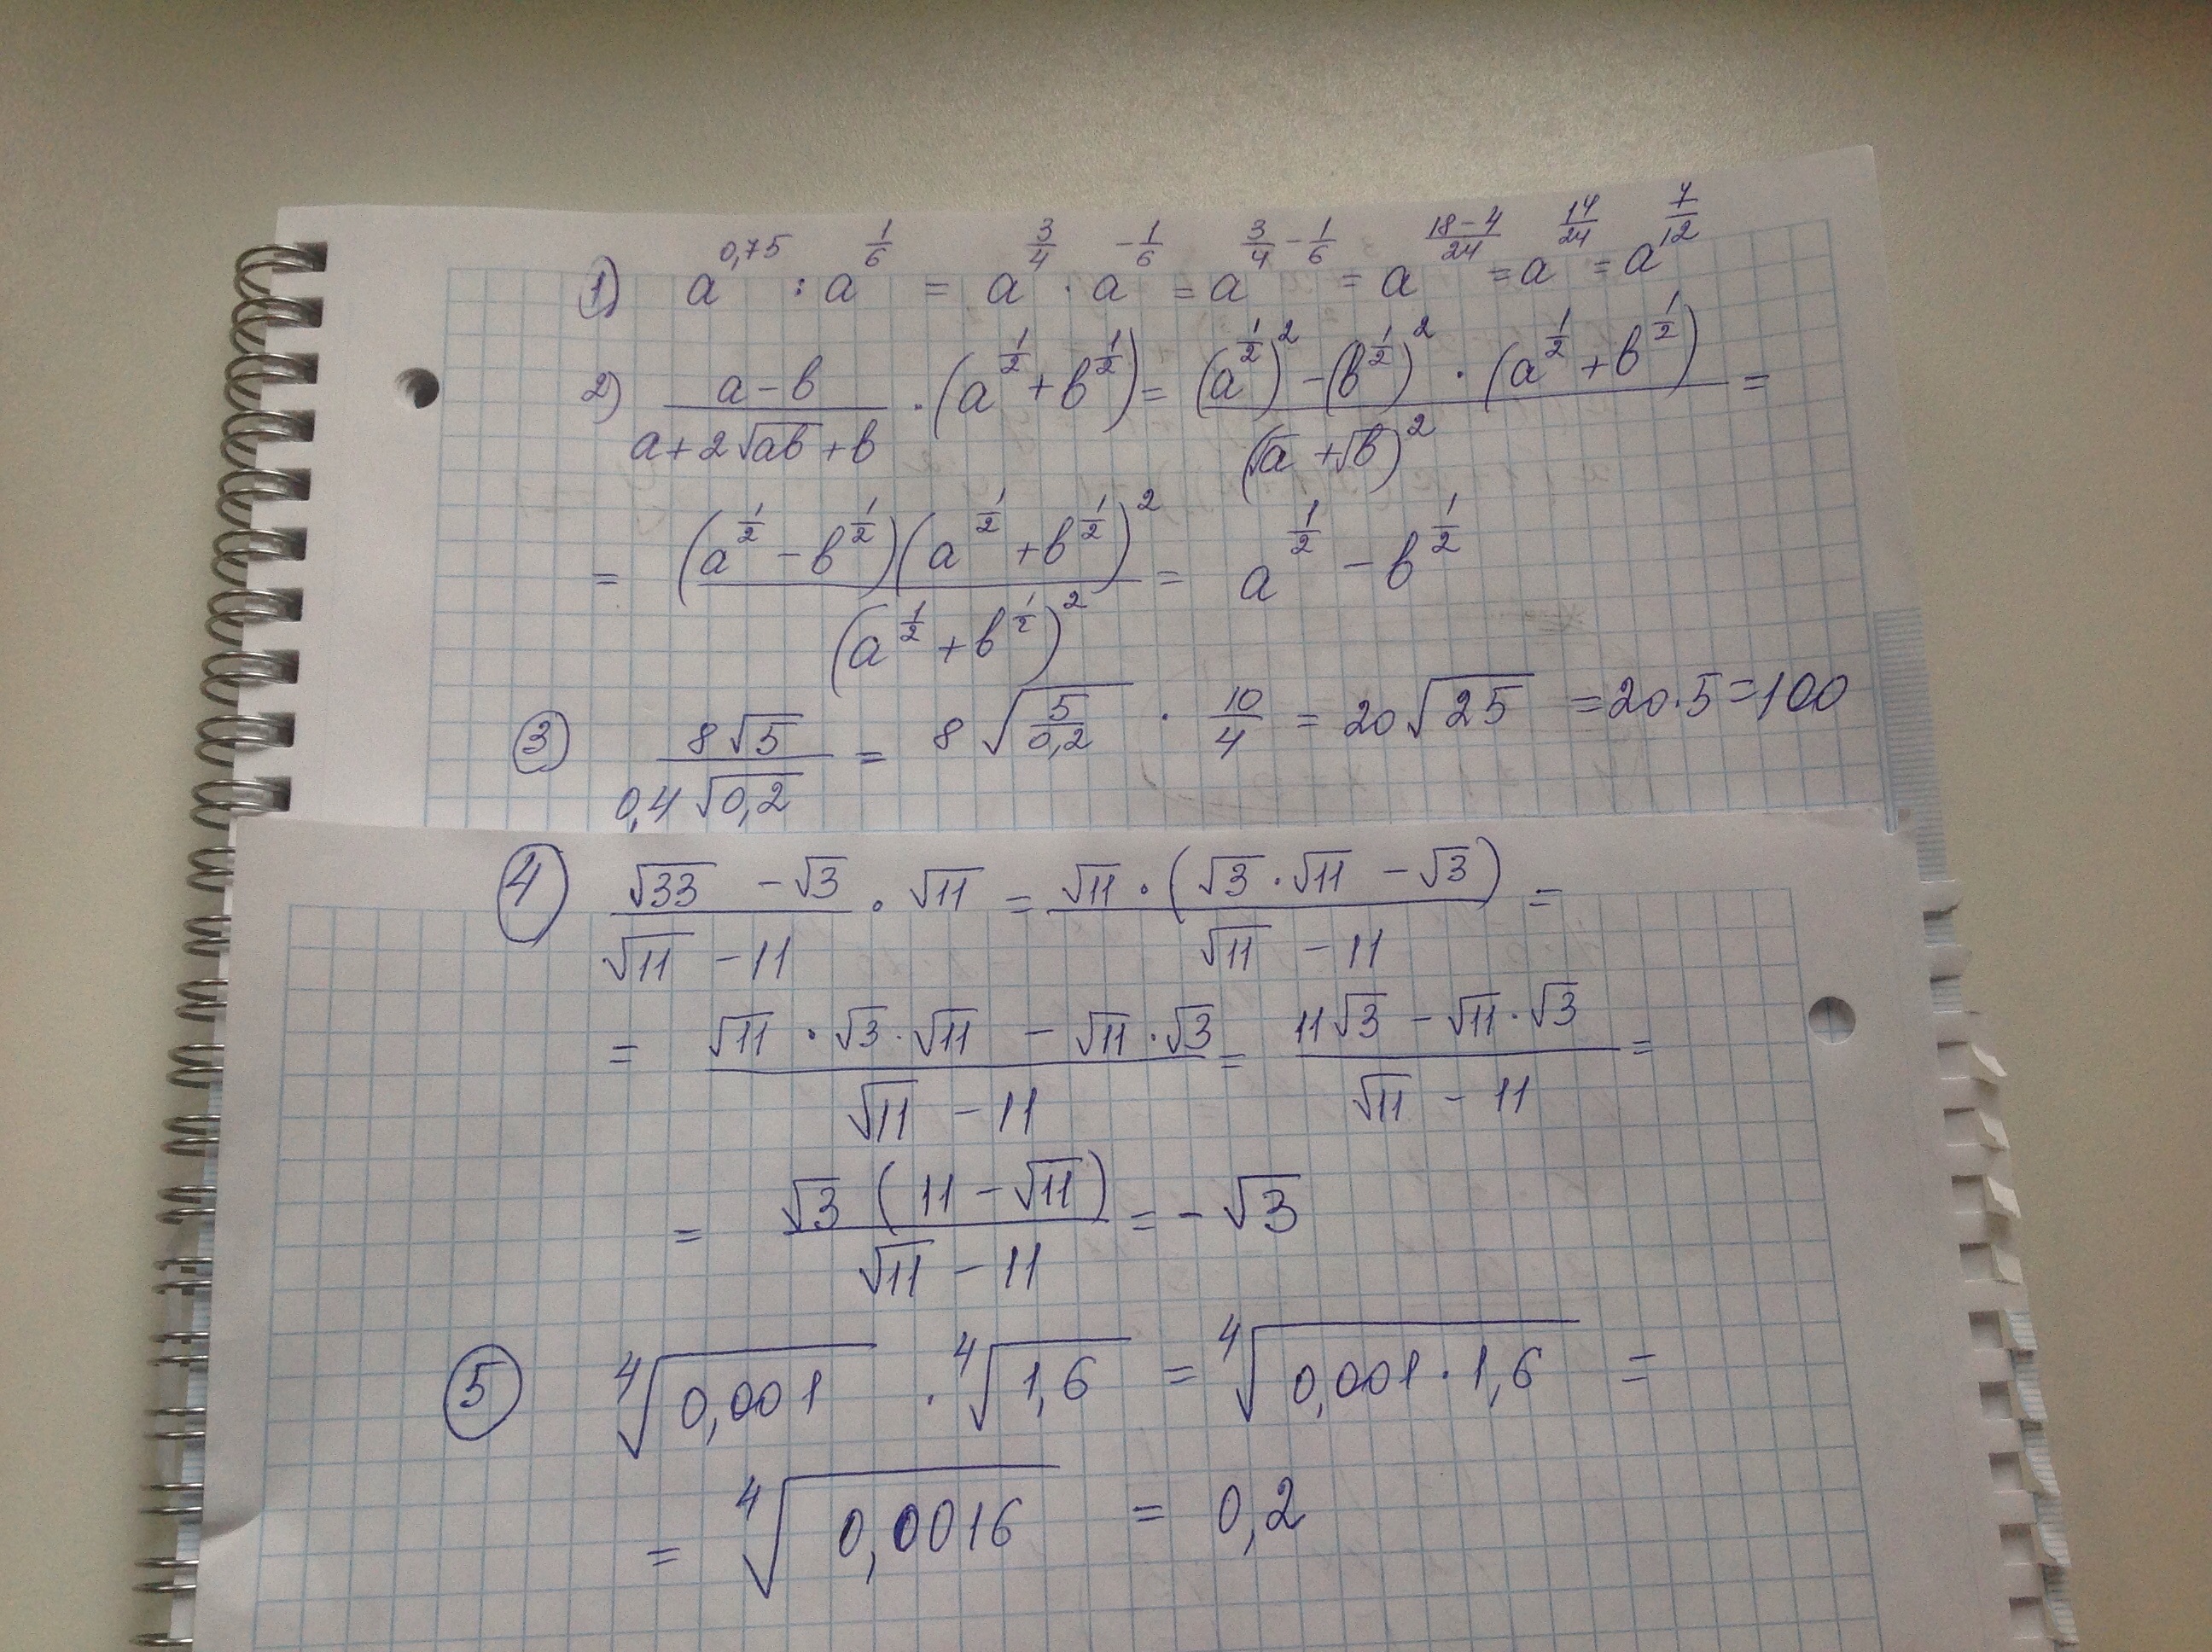 1) a^{0,75} : a^{1/6} = a^{3/4} · a^{-1/6} = a^{3/4 - 1/6} = a^{(18-4)/24} = a^{14/24} = a^{7/12}
2) (a-в)/(a+2√(aв)+в) · (a^{1/2}+в^{1/2}) = ((a^{1/2})^2 - (в^{1/2})^2 · (a^{1/2}+в^{1/2}))/(√a+√в)^2 =
= ((a^{1/2}-в^{1/2})(a^{1/2}+в^{1/2})^2)/(a^{1/2}+в^{1/2})^2 = a^{1/2} - в^{1/2}
3) 8√5/(0,4√(0,2)) = 8√(5/0,2) · 10/4 = 20√25 = 20·5 = 100
4) (√33 - √3)/(√11 - 11) · √11 = (√11 · (√3 · √11 - √3))/(√11 - 11) =
= (√11 · √3 · √11 - √11 · √3)/(√11 - 11) = (11√3 - √11 · √3)/(√11 - 11) =
= (√3 (11 - √11))/(√11 - 11) = -√3
5) ⁴√(0,001) · ⁴√(1,6) = ⁴√(0,001 · 1,6) =
= ⁴√(0,0016) = 0,2